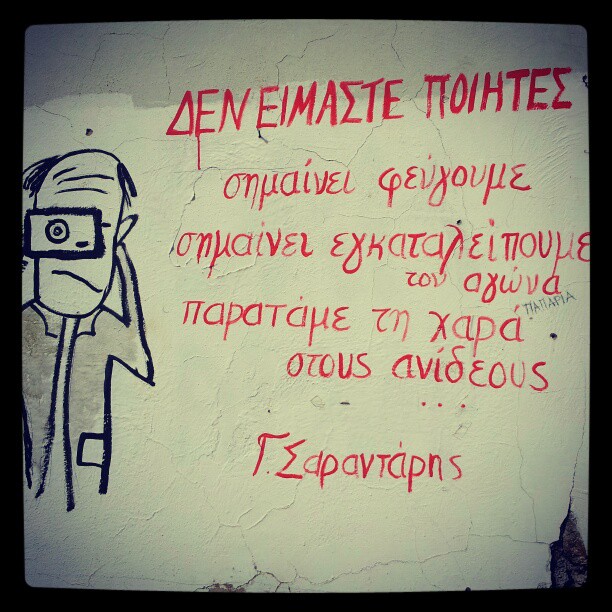 ΔΕΝ ΕΙΜΑΣΤΕ ΠΟΙΗΤΕΣ
σημαίνει φεύγουμε
σημαίνει εγκαταλείπουμε
τον αγώνα
παρατάμε τη χαρά
ΠΑΠΑΡΙΑ
στους ανίδεους
...
Γ. Σαραντάρης